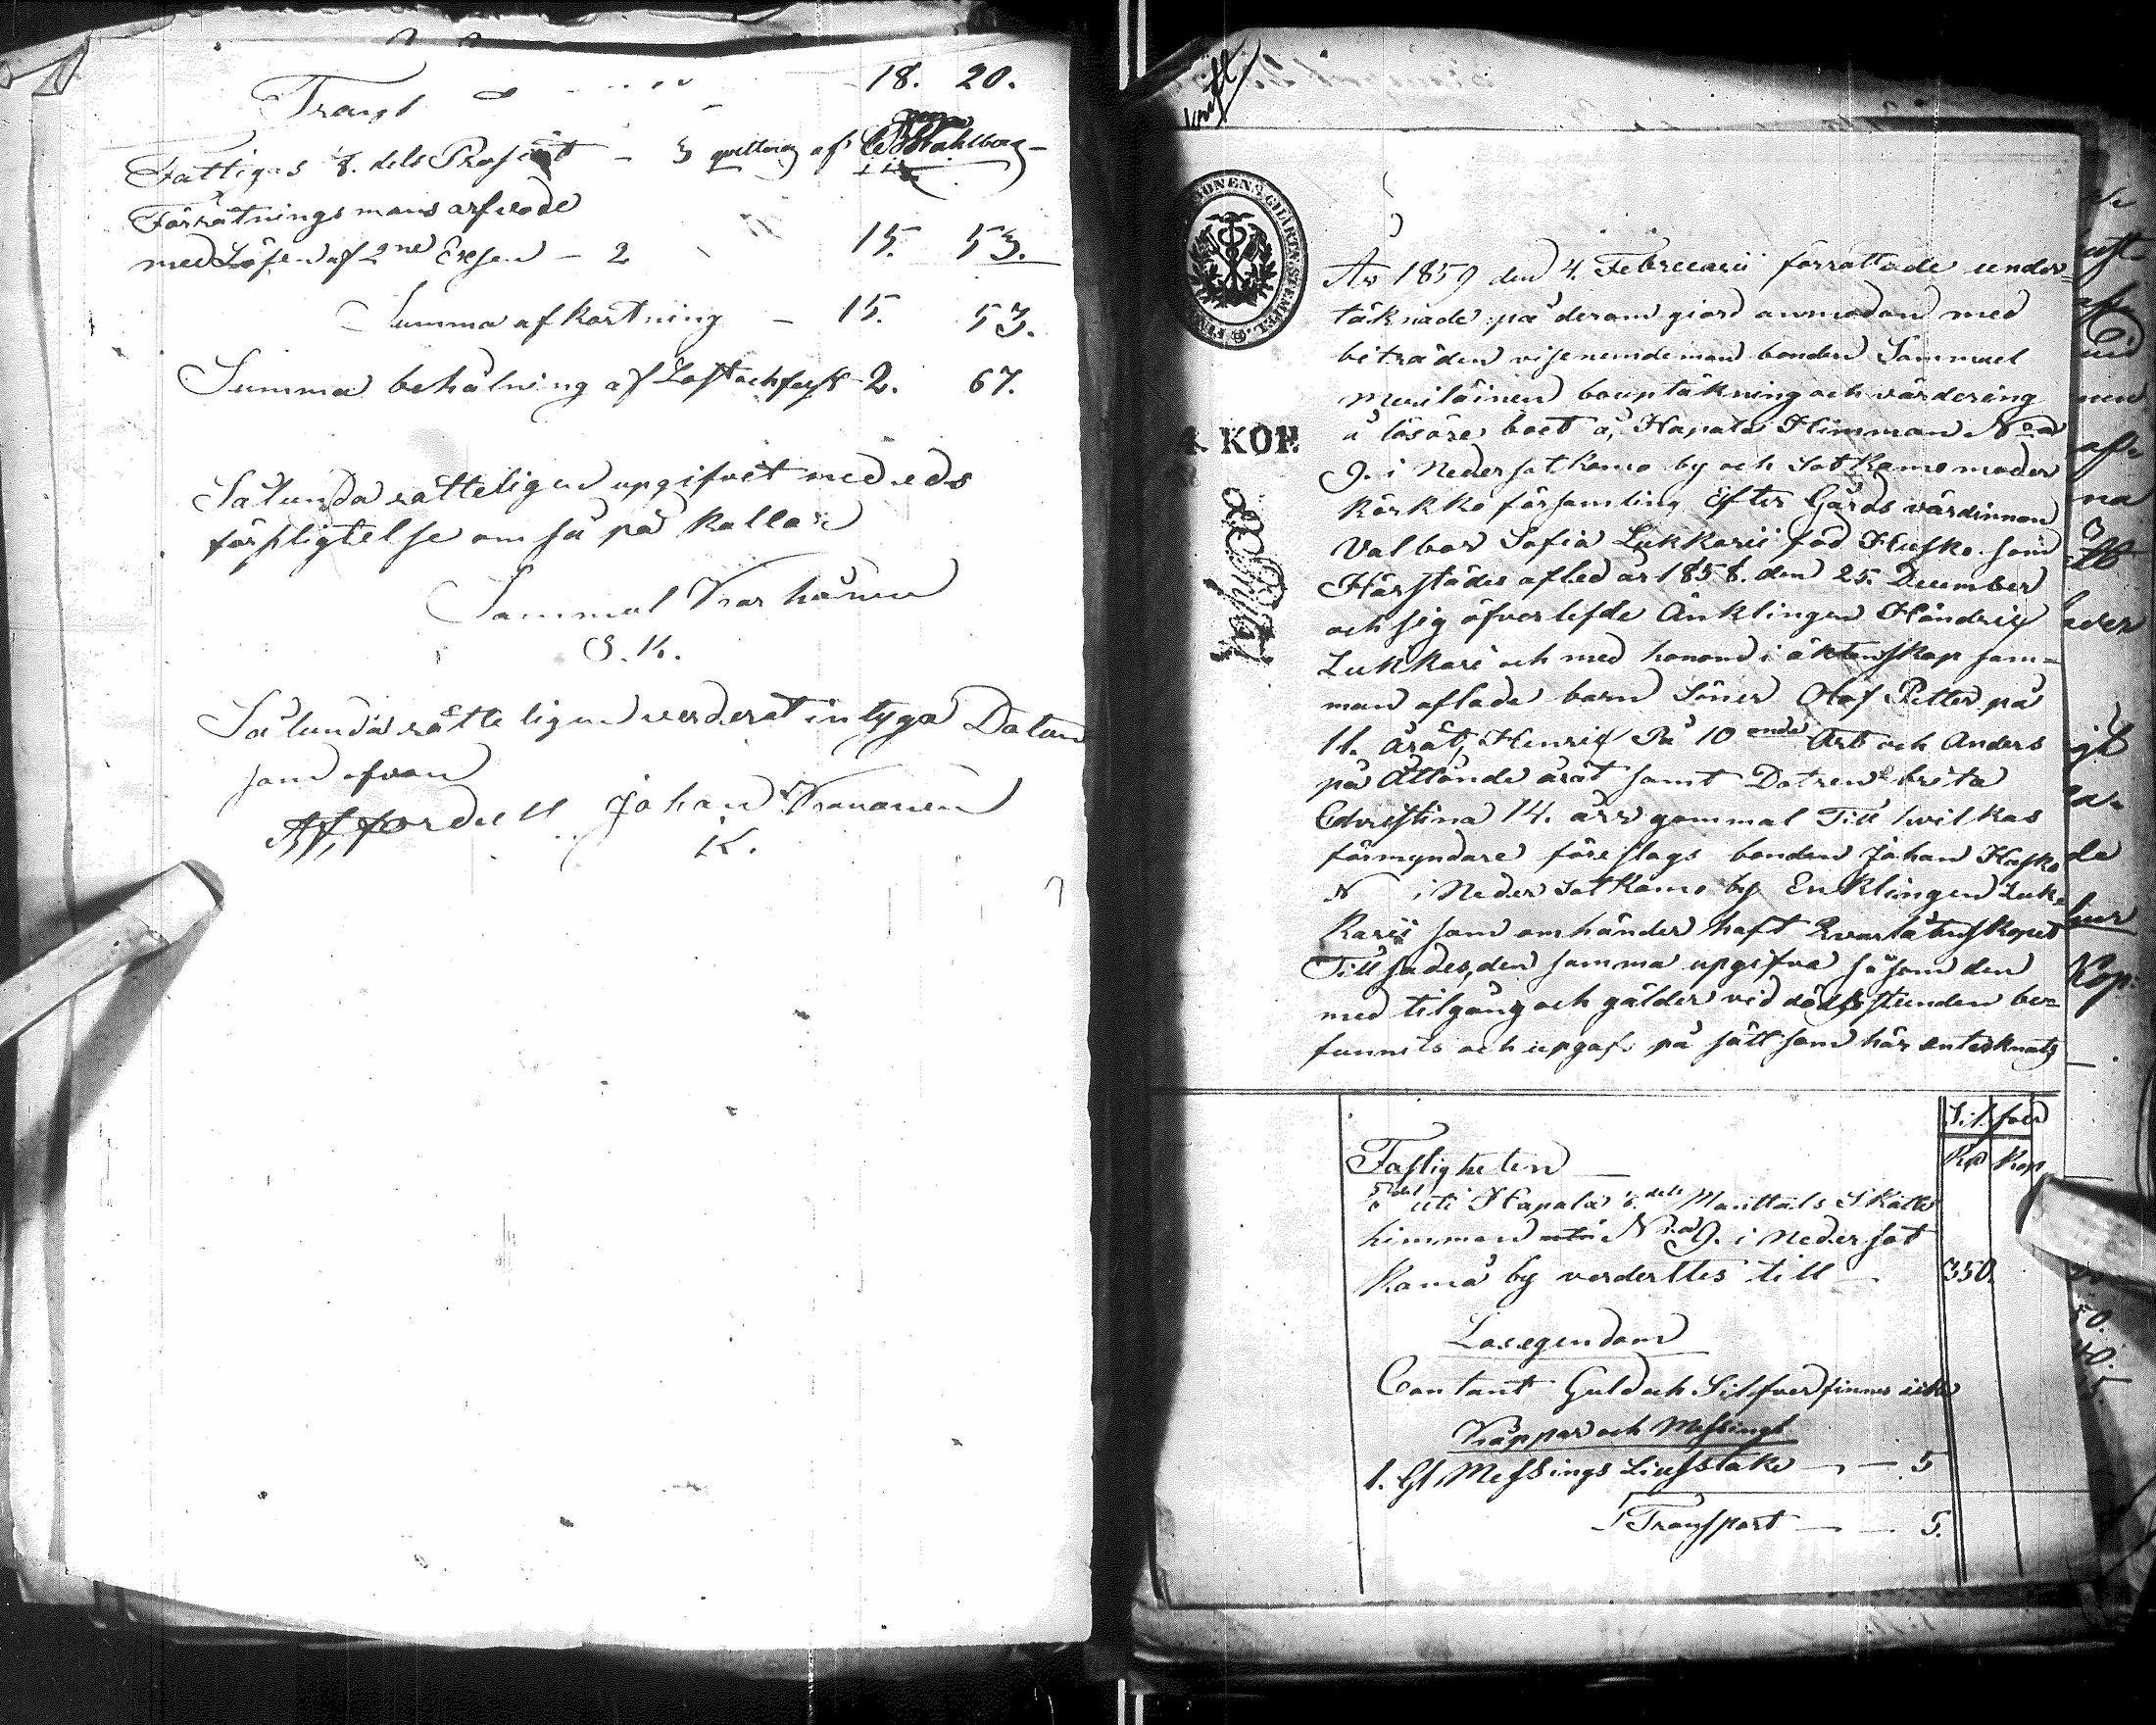 Transp 18. 20.
Fattigas 1/8. dels Prosent - 3 qvitteras af Wahlberg -
Förrätningsmans arfvode
med Lösen af 2ne Exsen - 2 15. 53.
Summa afkortning - 15. 53.
Summa behålning af Löst och fast - 2. 67.
Sålunda rätteligen upgifvet med eds
förpligtelse om så på kallas
Sammul Karhunen
S. K.
Sålunda rätteligen verderat intyga Datum
som ofvan
Johan Kananen
K.
4. KOP.
År 1859 den 4. Februarii förrättade under-
täknade på derom giord anmodan med
biträden vise nemdeman bonden Sammuel
Meriläinen bouptäkning och värdering
å lösöre boet å Hapala Hemman No
9. i Neder Sotkamo by och Sotkamo moder
körkko församling Efter Gårds värdinnan
Valbor Sofia Lukkarii föd Husko som
Härstädes afled år 1858. den 25. December
och sig öfverlefde Änklingen Händrix
Lukkari och med honom i äktenskap sam-
man aflade barn Söner Olof Petter på
11. årat, Henrix På 10 onde Art och Anders
på Åttånde årat samt Dotren brita
Christina 14. år gammal Till hvilkas
förmyndare föreslogs bonden Johan Husko
N i Neder Sotkamo by Enklingen Luk-
karii som om händer haft Qvarlåtenskapet
Tillsades, den samma upgifva såsom den
med tilgång och gälder vid dödsstunden be-
funnits och upgafs på sätt som här antecknats
Silfver
Rub Kop
Fastigheten
uti Hapala dels Manttals Skatte
himman No 9. i Neder Sot
kamo by verderttes till - 350.
Lösegendom
Contant Guld och Silfver finnes icke
Koppar och Messingt
1. St Messings Liusstake - - 5
Transport - - 5.